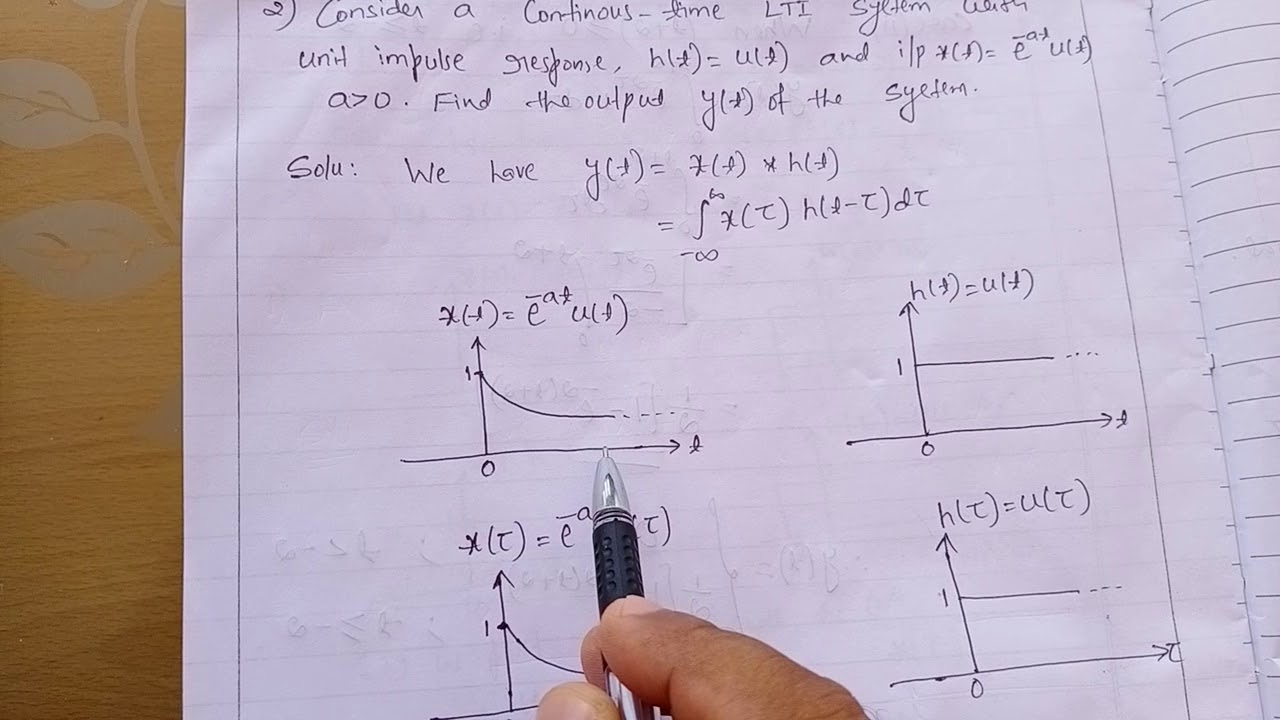 2) Consider a Continous-time LTI system with
unit impulse response, h(t) = u(t) and i/p x(t) = e^-at u(t)
a>0. Find the output y(t) of the system.
Solu: We have y(t) = x(t) * h(t)
= ∫_-∞^∞ x(τ) h(t-τ) dτ
x(t) = e^-at u(t)
h(t) = u(t)
1
1
t
t
0
0
x(τ) = e^-a τ)
h(τ) = u(τ)
1
1
τ
0